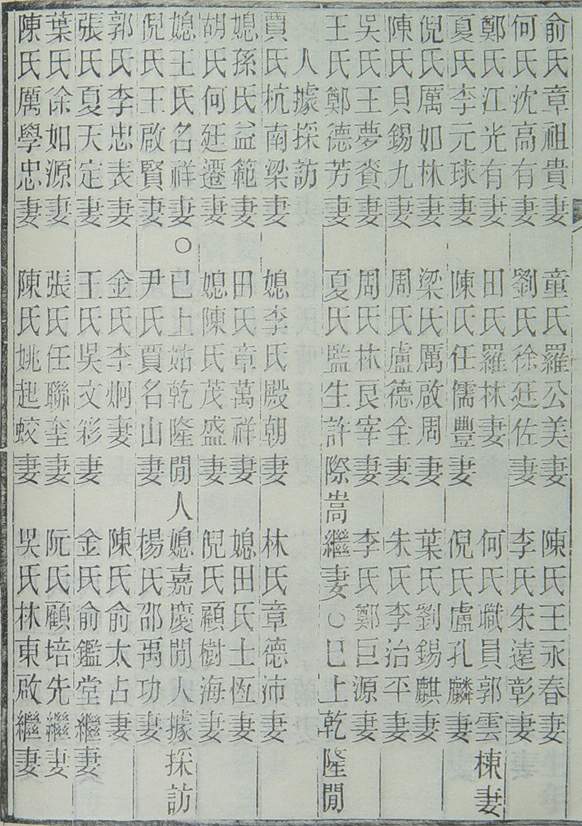 俞氏章祖貴妻　童氏羅公美妻　陳氏王永春妻
何氏沈高有妻　劉氏徐廷佐妻　李氏朱遠彰妻
鄭氏江光有妻　田氏羅林妻　何氏職員郭雲棟妻
夏氏李元球妻　陳氏任儒豐妻　倪氏盧孔麟妻
倪氏厲如林妻　梁氏厲啟周妻　葉氏劉錫麒妻
陳氏貝錫九妻　周氏盧德全妻　朱氏李治平妻
吳氏王夢賚妻　周氏林艮宰妻　李氏鄭巨源妻
王氏鄭德芳妻　夏氏監生許際嵩繼妻○已上乾隆閒
人據採訪
賈氏杭南梁妻　媳李氏殿朝妻　林氏章德沛妻
媳孫氏益範妻　田氏章萬祥妻　媳田氏士恆妻
胡氏何廷遷妻　媳陳氏茂盛妻　倪氏顧樹海妻
媳王氏名祥妻○已上姑乾隆閒人媳嘉慶閒人據採訪
倪氏王啟賢妻　尹氏賈名山妻　楊氏邵禹功妻
郭氏李忠表妻　金氏李炯妻　陳氏俞太占妻
張氏夏天定妻　王氏吳文彩妻　金氏俞鑑堂繼妻
葉氏徐如源妻　張氏任聯奎妻　阮氏顧培先繼妻
陳氏厲學忠妻　陳氏姚起蛟妻　吳氏林東啟繼妻